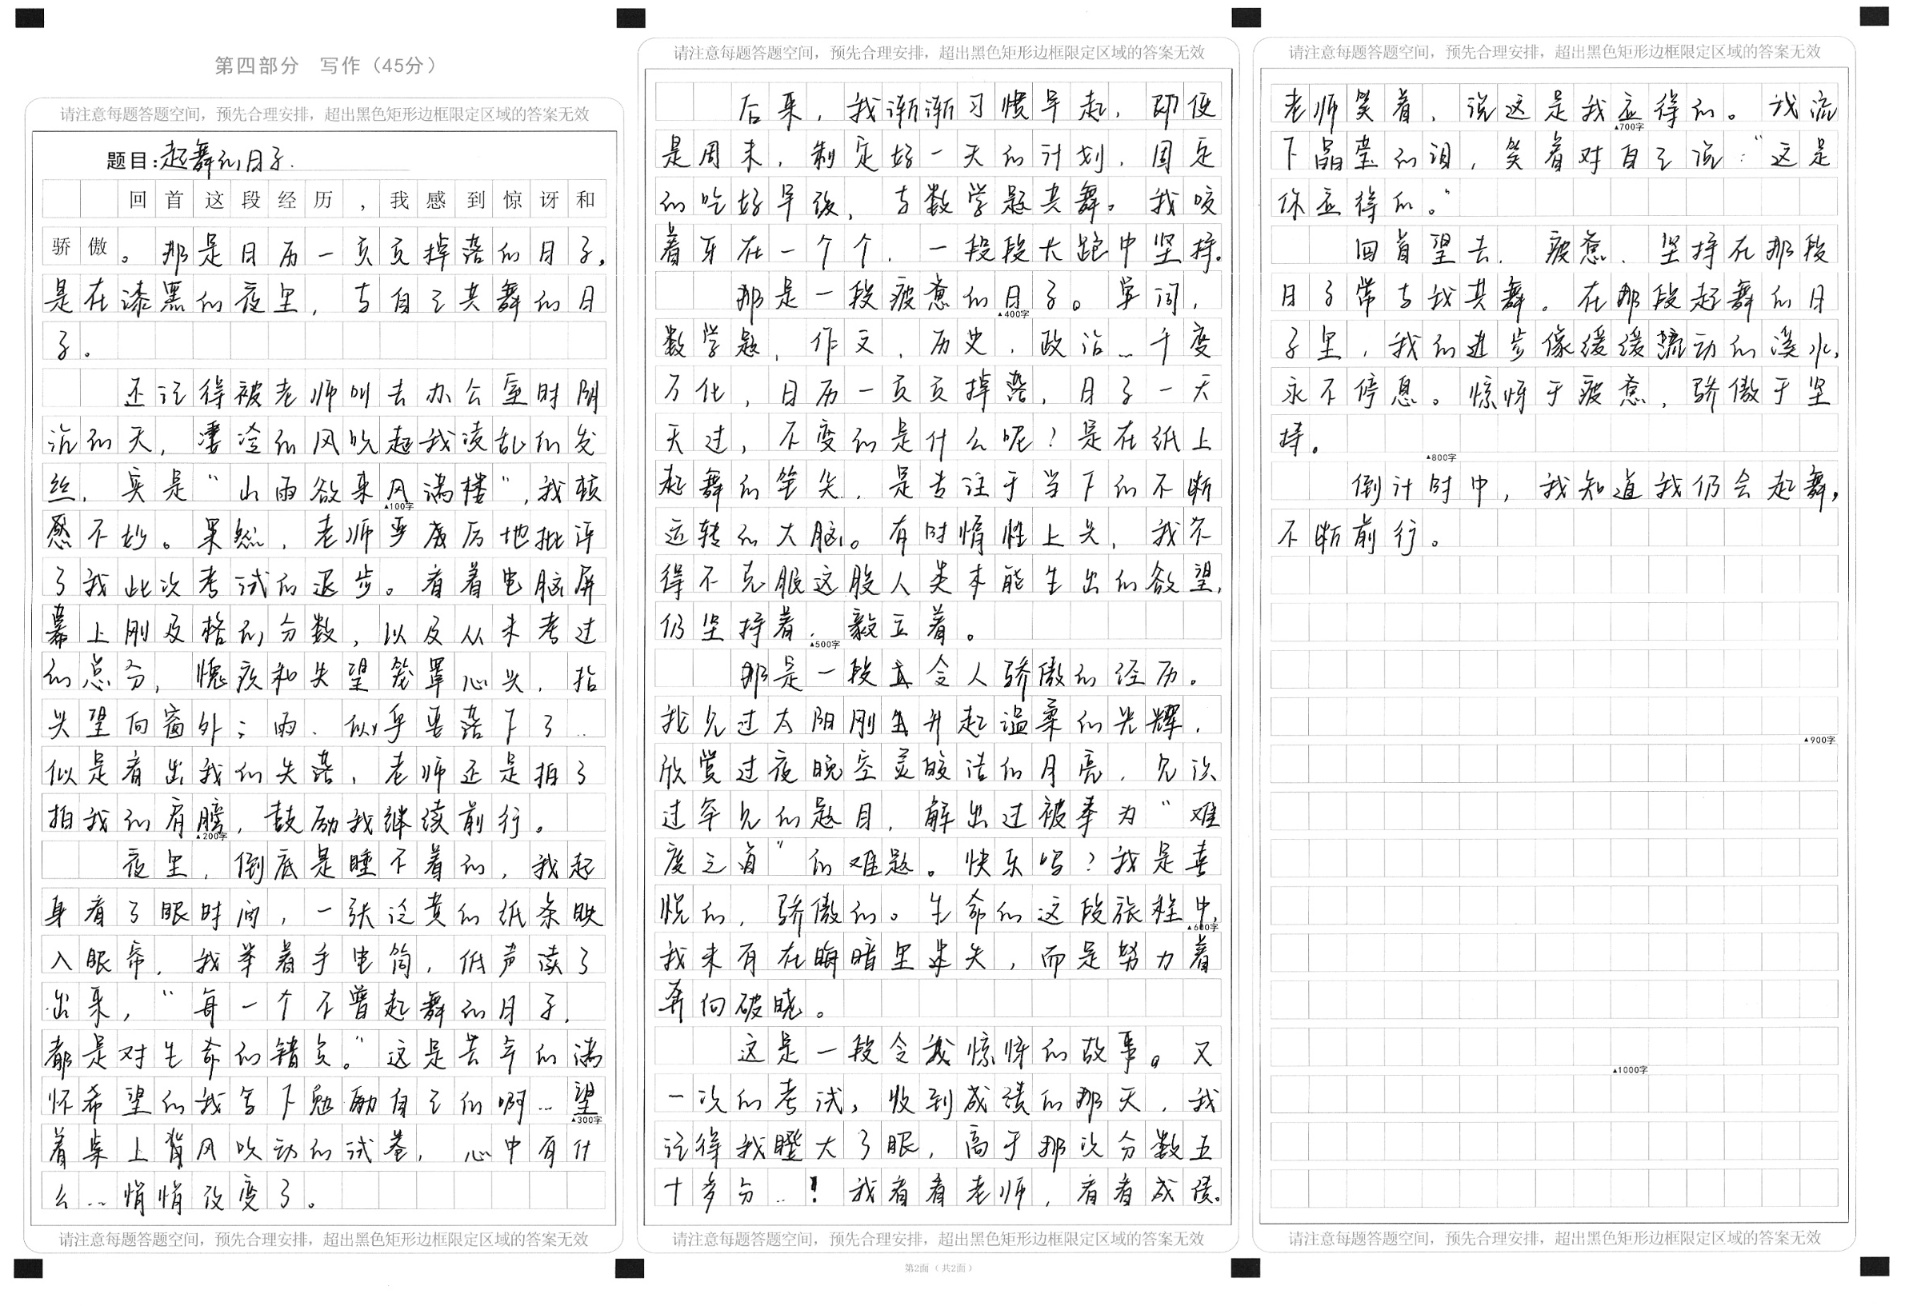 第四部分　写作（45分）
请注意每题答题空间，预先合理安排，超出黑色矩形边框限定区域的答案无效
题目：起舞的日子.
回首这段经历，我感到惊讶和
骄傲。那是日历一页页掉落的日子，
是在漆黑的夜里，与自己共舞的日
子。
还记得被老师叫去办公室时阴
沉的天，凄冷的风吹起我凌乱的发
丝，实是“山雨欲来风满楼”，我顿
▲100字
感不妙。果然，老师严肃厉地批评
了我此次考试的退步。看着电脑屏
幕上刚及格的分数，以及从未考过
的总分，愧疚和失望笼罩心头，抬
头望向窗外；雨、似乎要落下了…
似是看出我的失落，老师还是拍了
拍我的肩膀，鼓励我继续前行。
▲200字
夜里，倒底是睡不着的，我起
身看了眼时间，一张泛黄的纸条映
入眼帘，我举着手电筒，低声读了
出来，“每一个不曾起舞的日子，
都是对生命的错负。”这是去年的满
怀希望的我写下勉励自己的啊…望
▲300字
着桌上背风吹动的试卷，心中有什
么…悄悄改变了。
请注意每题答题空间，预先合理安排，超出黑色矩形边框限定区域的答案无效
请注意每题答题空间，预先合理安排，超出黑色矩形边框限定区域的答案无效
后来，我渐渐习惯早起，即使
是周末，制定好一天的计划，固定
的吃好早饭，与数学题共舞。我咬
着牙在一个个，一段段大跑中坚持。
那是一段疲惫的日子。字词，
▲400字
数学题，作文，历史，政治…千变
万化，日历一页页掉落，日子一天
天过，不变的是什么呢？是在纸上
起舞的笔尖，是专注于当下的不断
运转的大脑。有时惰性上头，我不
得不克服这股人类本能生出的欲望，
仍坚持着，毅立着。
▲500字
那是一段令人骄傲的经历。
我见过太阳刚升起温柔的光辉，
欣赏过夜晚空灵皎洁的月亮，见识
过罕见的题目，解出过被奉为“难
度之首”的难题。快乐吗？我是喜
悦的，骄傲的。生命的这段旅程中，
▲600字
我未有在晦暗里迷失，而是努力着
奔向破晓。
这是一段令我惊讶的故事。又
一次的考试，收到成绩的那天，我
记得我瞪大了眼，高于那次分数五
十多分…！我看看老师，看看成绩。
请注意每题答题空间，预先合理安排，超出黑色矩形边框限定区域的答案无效
第2面（共2面）
请注意每题答题空间，预先合理安排，超出黑色矩形边框限定区域的答案无效
老师笑着，说这是我应得的。我流
▲700字
下晶莹的泪，笑着对自己说：“这是
你应得的。”
回首望去，疲惫、坚持在那段
日子常与我共舞。在那段起舞的日
子里，我的进步像缓缓流动的溪水，
永不停息。惊讶于疲惫，骄傲于坚
持。
▲800字
倒计时中，我知道我仍会起舞，
不断前行。
▲900字
▲1000字
请注意每题答题空间，预先合理安排，超出黑色矩形边框限定区域的答案无效